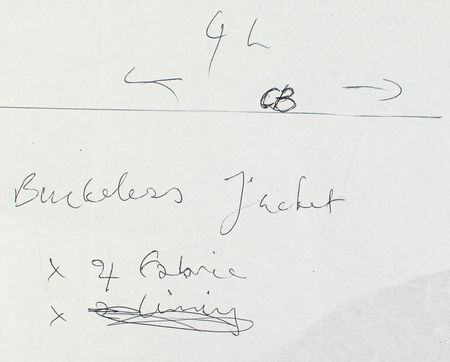 GL
CB
Buckeless Jacket
x 2 Fabric
x 2 lining